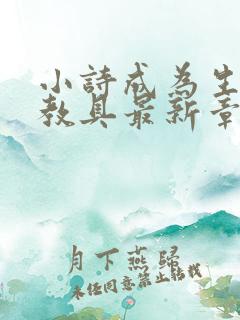 小詩成為生
教具最新章
月下燕歸
未经同意禁止转载